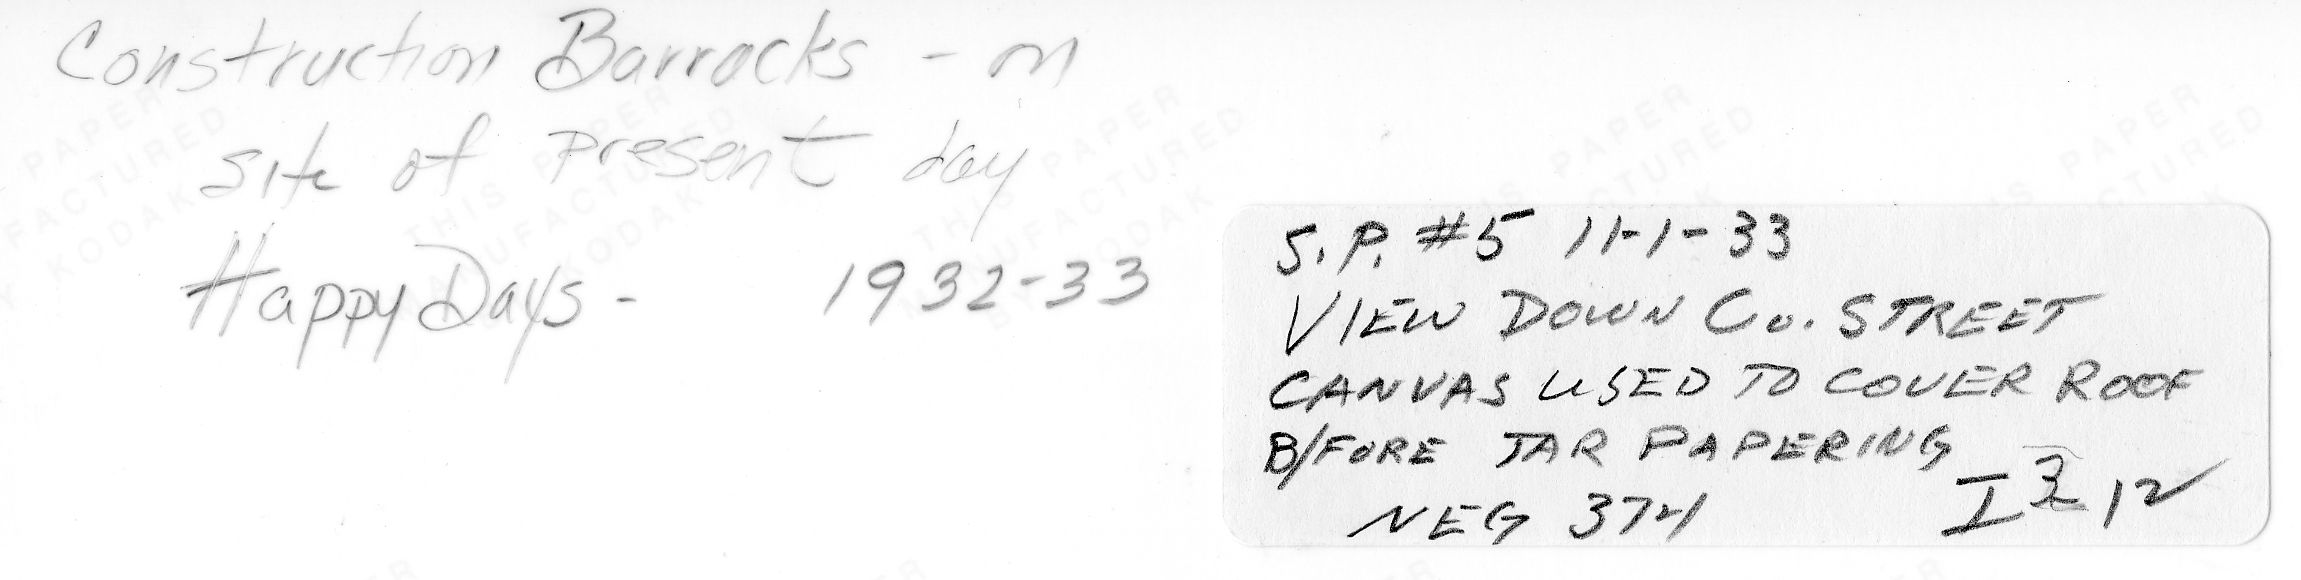 Construction Barracks - on
site of present day
Happy Days - 1932-33
S.P. #5 11-1-33
VIEW DOWN Co. STREET
CANVAS USED TO COVER ROOF
B/FORE TAR PAPERING
NEG 374
I 12
THIS PAPER
MANUFACTURED
BY KODAK